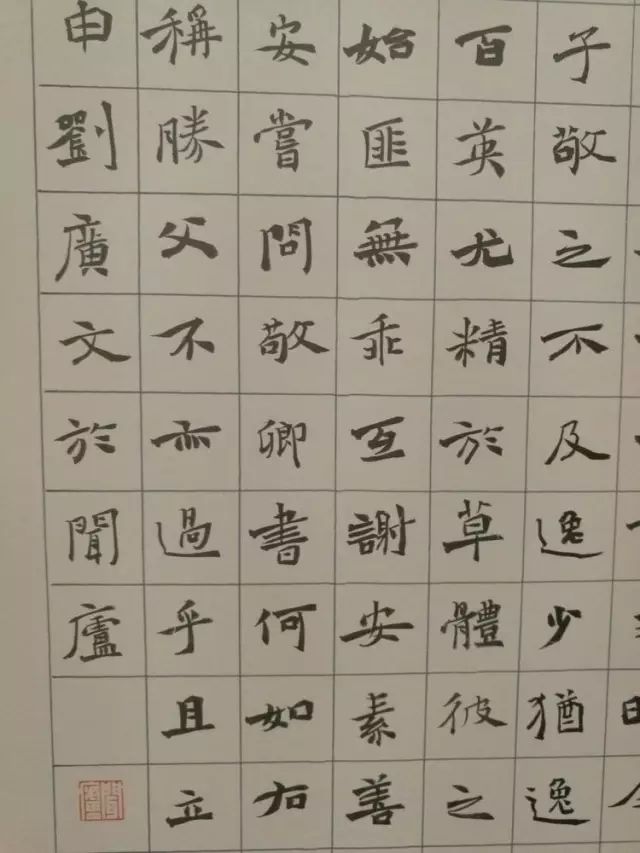 子敬之不及逸少猶逸
百英尤精於草體彼之
始匪無乖互謝安素善
安嘗問敬卿書何如右
稱勝父不亦過乎且立
申劉廣文於聞廬